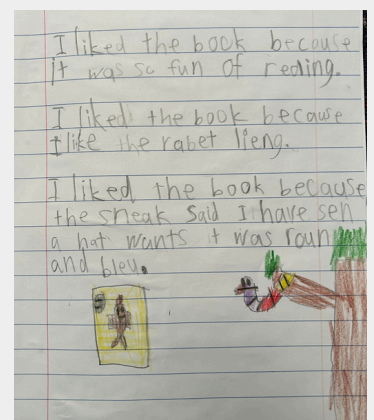 I liked the book because
it was so fun of reding.
I liked the book because
I like the rabet lieng.
I liked the book because
the sneak said I have sen
a hat wants it was roun
and bleu.